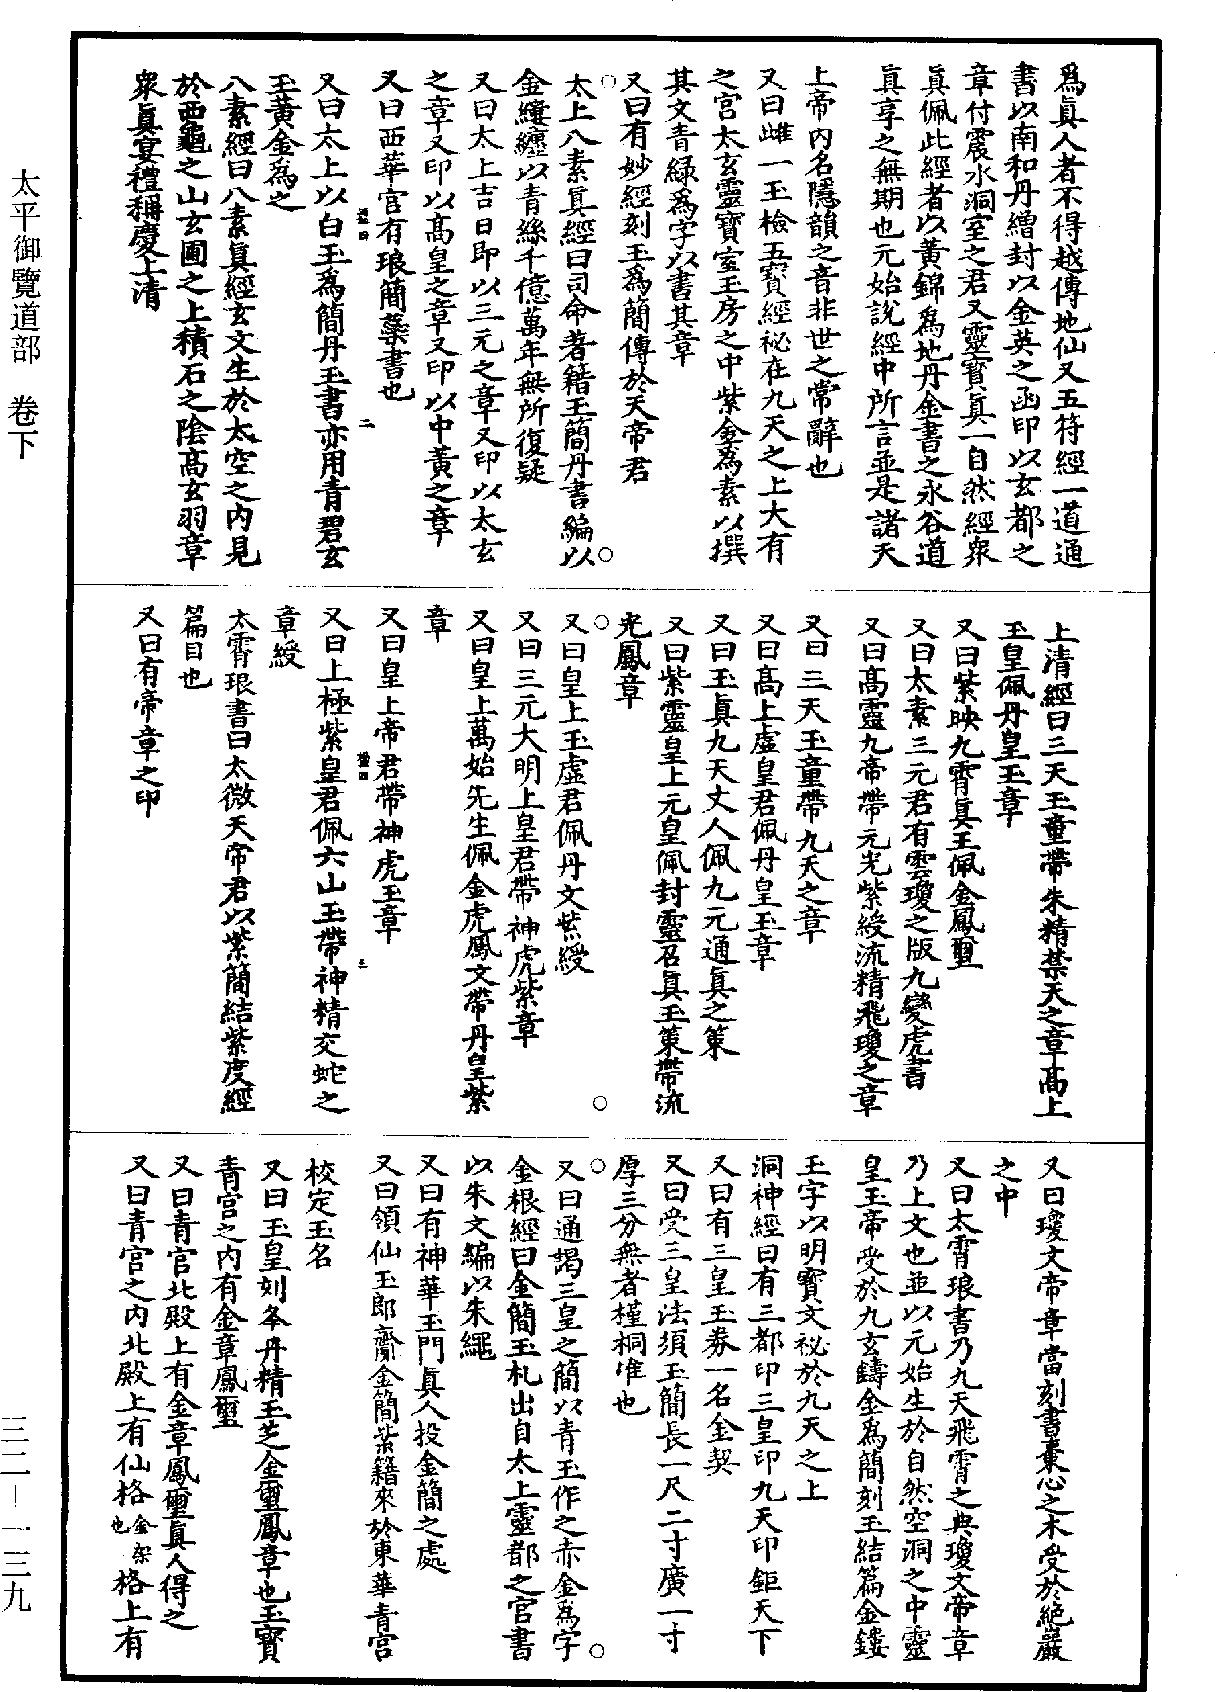 太平御覽道部　卷下
三二—一三九
爲眞人者不得越傳地仙又五符經一道通
書以南和丹繒封以金英之函印以玄都之
章付震水洞室之君又靈寳眞一自然經衆
眞佩此經者以黃錦爲地丹金書之永谷道
眞享之無期也元始說經中所言並是諸天
上帝内名隱韻之音非世之常辭也
又曰雌一玉檢五寳經祕在九天之上大有
之宮太玄靈寳室玉房之中紫金爲素以撰
其文青綠爲字以書其章
又曰有妙經刻玉爲簡傳於天帝君
太上八素眞經曰司命著籍玉簡丹書編以
金縷纏以青絲千億萬年無所復疑
又曰太上吉日即以三元之章又印以太玄
之章又印以高皇之章又印以中黃之章
又曰西華宮有琅簡蘂書也
又曰太上以白玉爲簡丹玉書亦用青碧玄
玉黃金爲之
八素經曰八素眞經玄文生於太空之内見
於西龜之山玄圃之上積石之隂高玄羽章
衆眞宴禮稱慶上清
上清經曰三天玉童帶朱精禁天之章高上
玉皇佩丹皇玉章
又曰紫映九霄眞王佩金鳳璽
又曰太素三元君有雲瓊之版九變虎書
又曰高靈九帝帶元光紫綬流精飛瓊之章
又曰三天玉童帶九天之章
又曰高上虛皇君佩丹皇玉章
又曰玉眞九天丈人佩九元通眞之策
又曰紫靈皇上元皇佩封靈召眞玉策帶流
光鳳章
又曰皇上玉虛君佩丹文紫綬
又曰三元大明上皇君帶神虎紫章
又曰皇上萬始先生佩金虎鳳文帶丹皇紫
章
又曰皇上帝君帶神虎玉章
又曰上極紫皇君佩六山玉帶神精交蛇之
章綬
太霄琅書曰太微天帝君以紫簡結紫度經
篇目也
又曰有帝章之印
又曰瓊文帝章當刻書棗心之木受於絶巖
之中
又曰太霄琅書乃九天飛霄之典瓊文帝章
乃上文也並以元始生於自然空洞之中靈
皇玉帝受於九玄鑄金爲簡刻玉結篇金鏤
玉字以明寳文祕於九天之上
洞神經曰有三都印三皇印九天印鉅天下
又曰有三皇玉券一名金契
又曰受三皇法須玉簡長一尺二寸廣一寸
厚三分無者槿桐惟也
又曰通謁三皇之簡以青玉作之赤金爲字
金根經曰金簡玉札出自太上靈都之宮書
以朱文編以朱繩
又曰有神華玉門眞人投金簡之處
又曰領仙玉郎齎金簡紫籍來於東華青宮
校定玉名
又曰玉皇刻夲丹精玉芝金璽鳳章也玉寳
青宮之内有金章鳳璽
又曰青宮北殿上有金章鳳璽眞人得之
又曰青宮之内北殿上有仙格金架也格上有